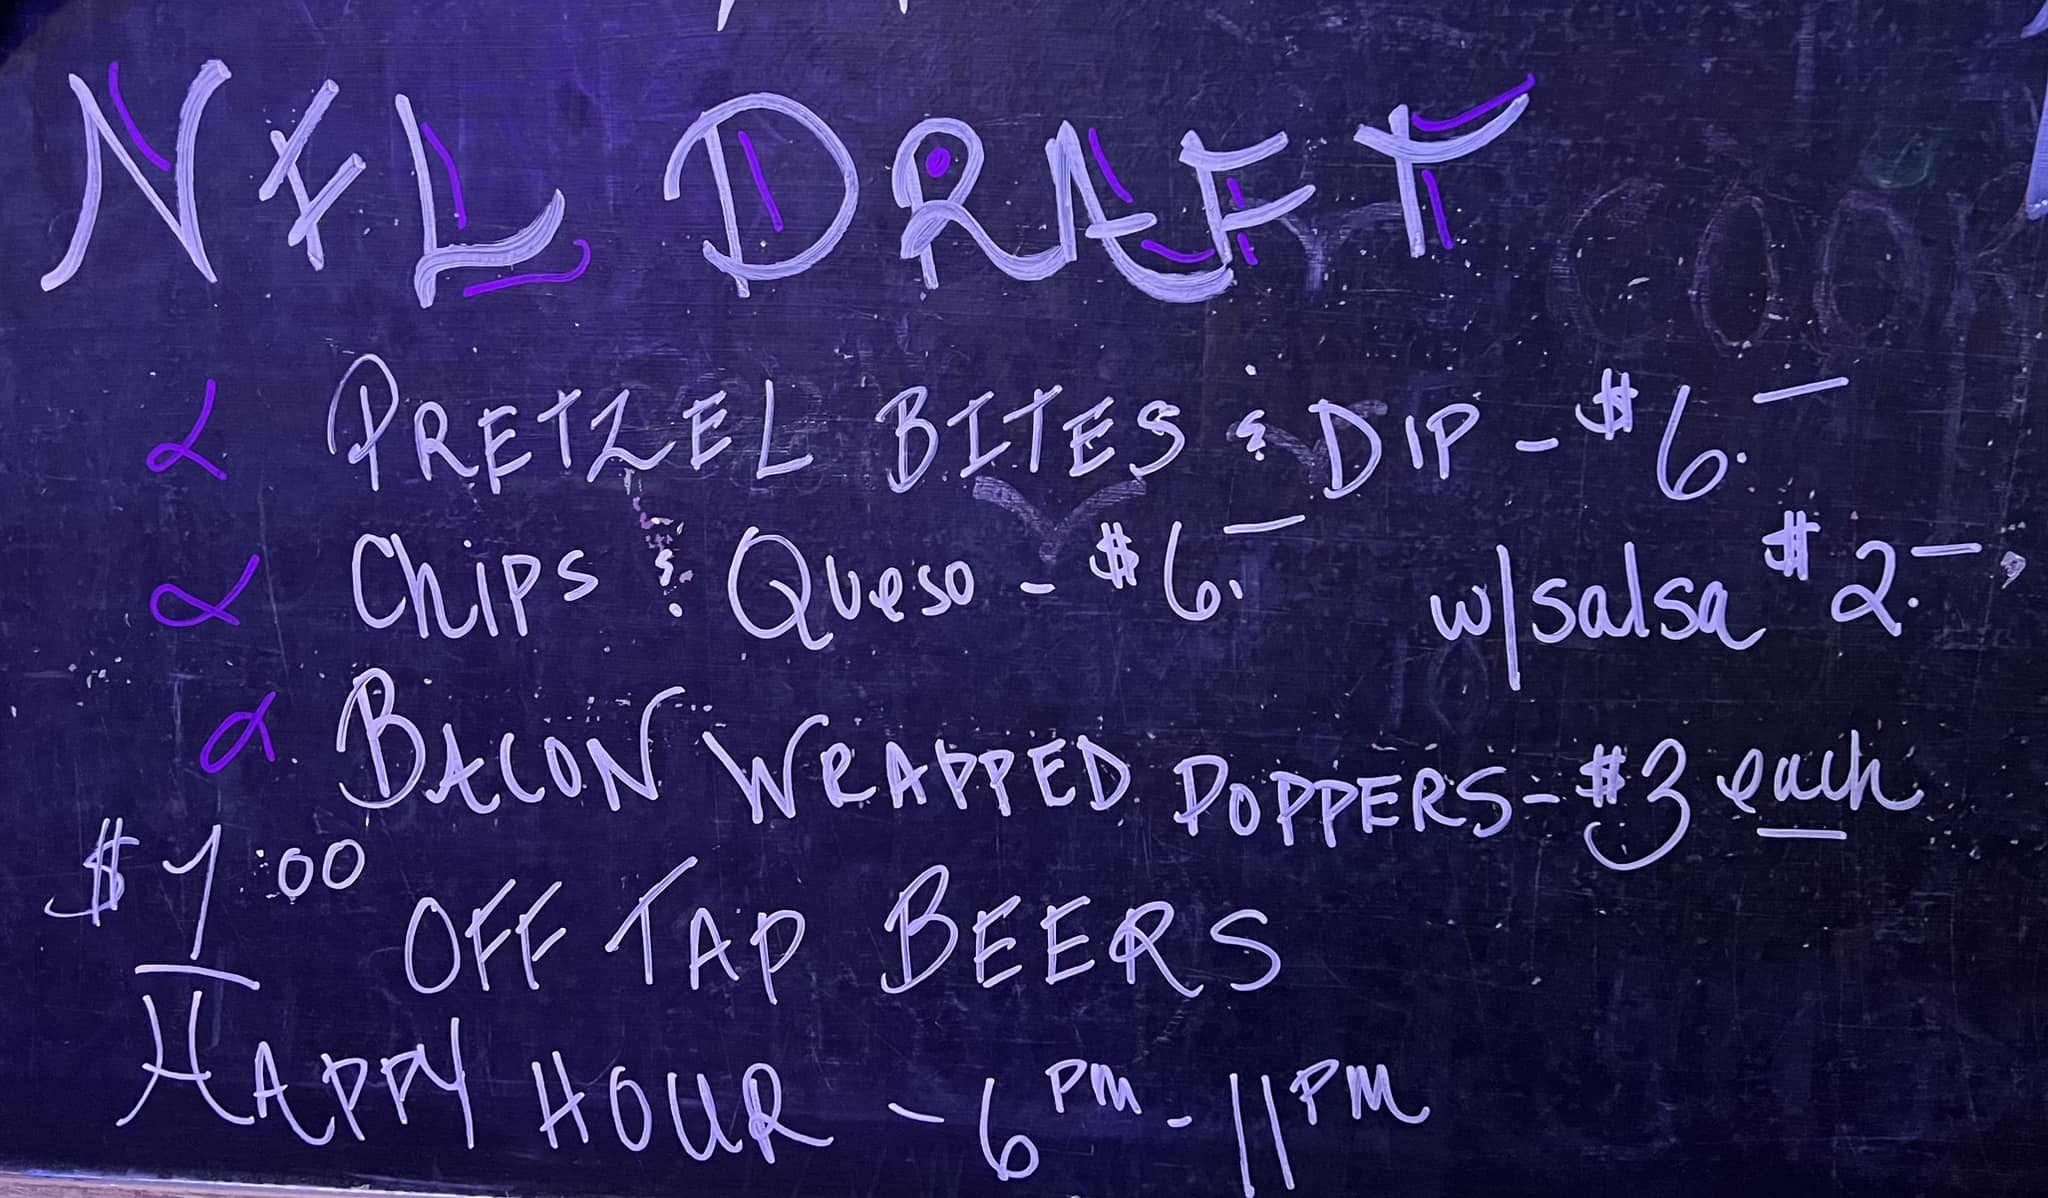 NFL DRAFT
PRETZEL BITES & DIP - $6.—
Chips & Queso - $6.— w/salsa $2.—
BACON WRAPPED POPPERS - $3 each
$1:00 OFF TAP BEERS
HAPPY HOUR - 6PM - 11PM